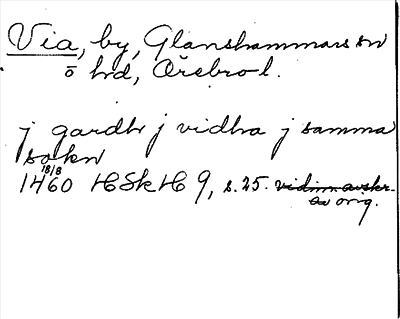 Via, by, Glanshammars sn
o hd, Örebro l.
j gardh j vidhia j samma
sokn
18/8
1460 HSkH 9, s. 25. vidim. avskr.
av orig.